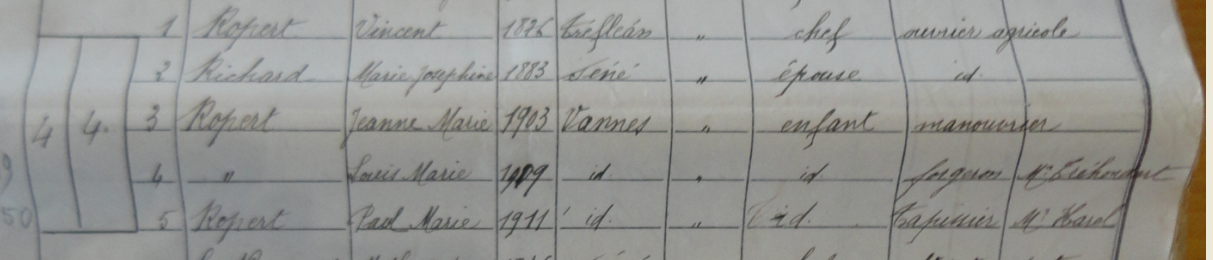 1 Ropert Vincent 1876 Tréfléan " chef ouvrier agricole
2 Richard Marie Josephine 1883 Séné " épouse id.
4 4. 3 Ropert Jeanne Marie 1903 Vannes " enfant manouvrier
4 " Louis Marie 1909 id " id forgeron Mr
50 5 Ropert Paul Marie 1911 id. " id. Tapissier Mr Harel